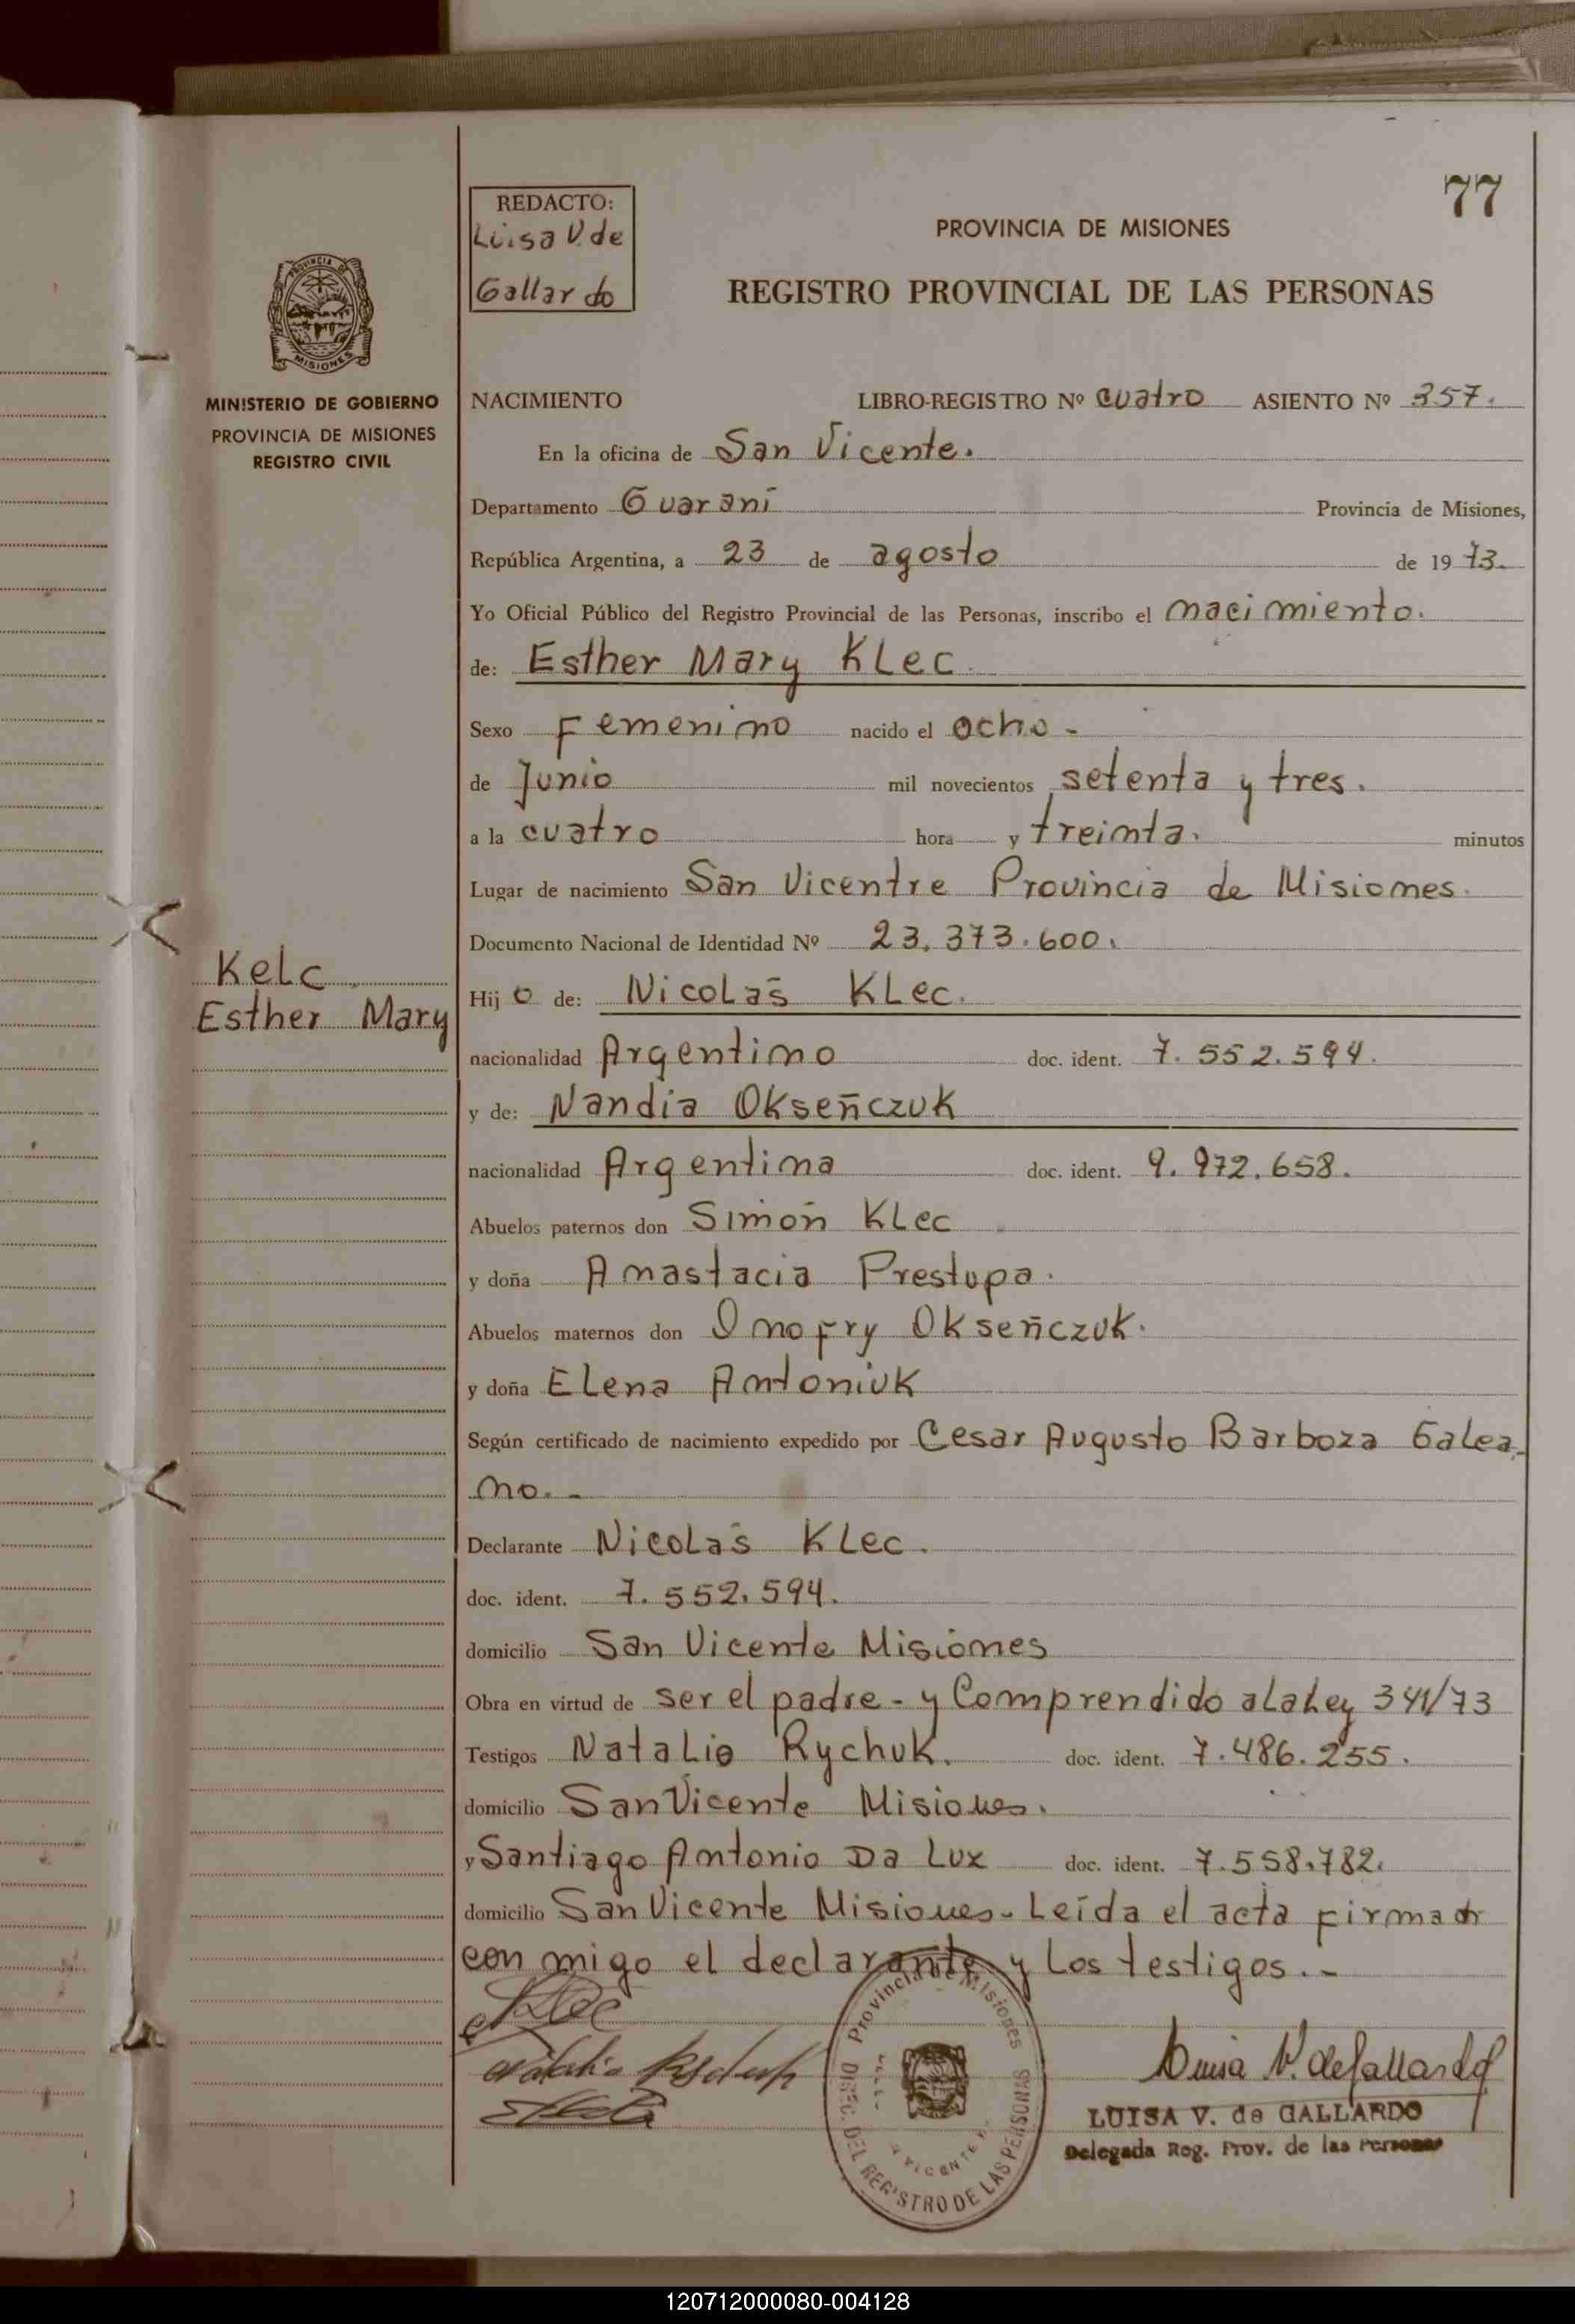 77
REDACTO:
Luisa V. de
Gallardo
PROVINCIA DE MISIONES
REGISTRO PROVINCIAL DE LAS PERSONAS
PROVINCIA DE
MISIONES
MINISTERIO DE GOBIERNO
PROVINCIA DE MISIONES
REGISTRO CIVIL
NACIMIENTO LIBRO-REGISTRO Nº cuatro ASIENTO Nº 357.
En la oficina de San Vicente.
Departamento Guaraní Provincia de Misiones,
República Argentina, a 23 de agosto de 1973.
Yo Oficial Público del Registro Provincial de las Personas, inscribo el nacimiento.
de: Esther Mary KLec
Sexo Femenino nacido el ocho -
de Junio mil novecientos setenta y tres.
a la cuatro hora y treinta. minutos
Lugar de nacimiento San Vicentre Provincia de Misiones.
Documento Nacional de Identidad Nº 23.373.600.
Kelc
Esther Mary
Hij o de: Nicolás KLec.
nacionalidad Argentino doc. ident. 7.552.594.
y de: Nandia Okseñczuk
nacionalidad Argentina doc. ident. 9.972.658.
Abuelos paternos don Simón KLec
y doña Anastacia Prestupa.
Abuelos maternos don Onofry Okseñczuk.
y doña Elena Antoniuk
Según certificado de nacimiento expedido por Cesar Augusto Barboza Galea-
no. -
Declarante Nicolás KLec.
doc. ident. 7.552.594.
domicilio San Vicente Misiones
Obra en virtud de ser el padre - y Comprendido a la Ley 341/73
Testigos Natalio Rychuk. doc. ident. 7.486.255.
domicilio San Vicente Misiones.
y Santiago Antonio Da Lux doc. ident. 7.558.782.
domicilio San Vicente Misiones - Leída el acta firman
con migo el declarante y Los testigos. -
Provincia de Misiones
DIREC. DEL REGISTRO DE LAS PERSONAS
Luisa V. de Gallardo
LUISA V. de GALLARDO
Delegada Reg. Prov. de las Personas
120712000080-004128